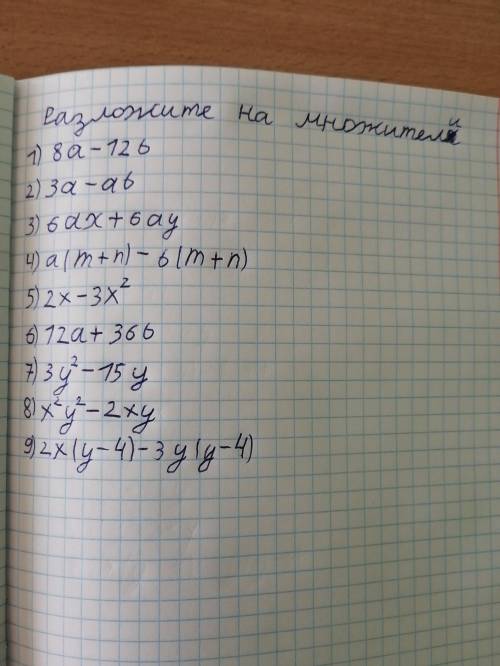 Разложите на множители
1) 8a-12b
2) 3a-ab
3) 6ax+6ay
4) a(m+n)-b(m+n)
5) 2x-3x²
6) 12a+36b
7) 3y²-15y
8) x²y²-2xy
9) 2x(y-4)-3y(y-4)